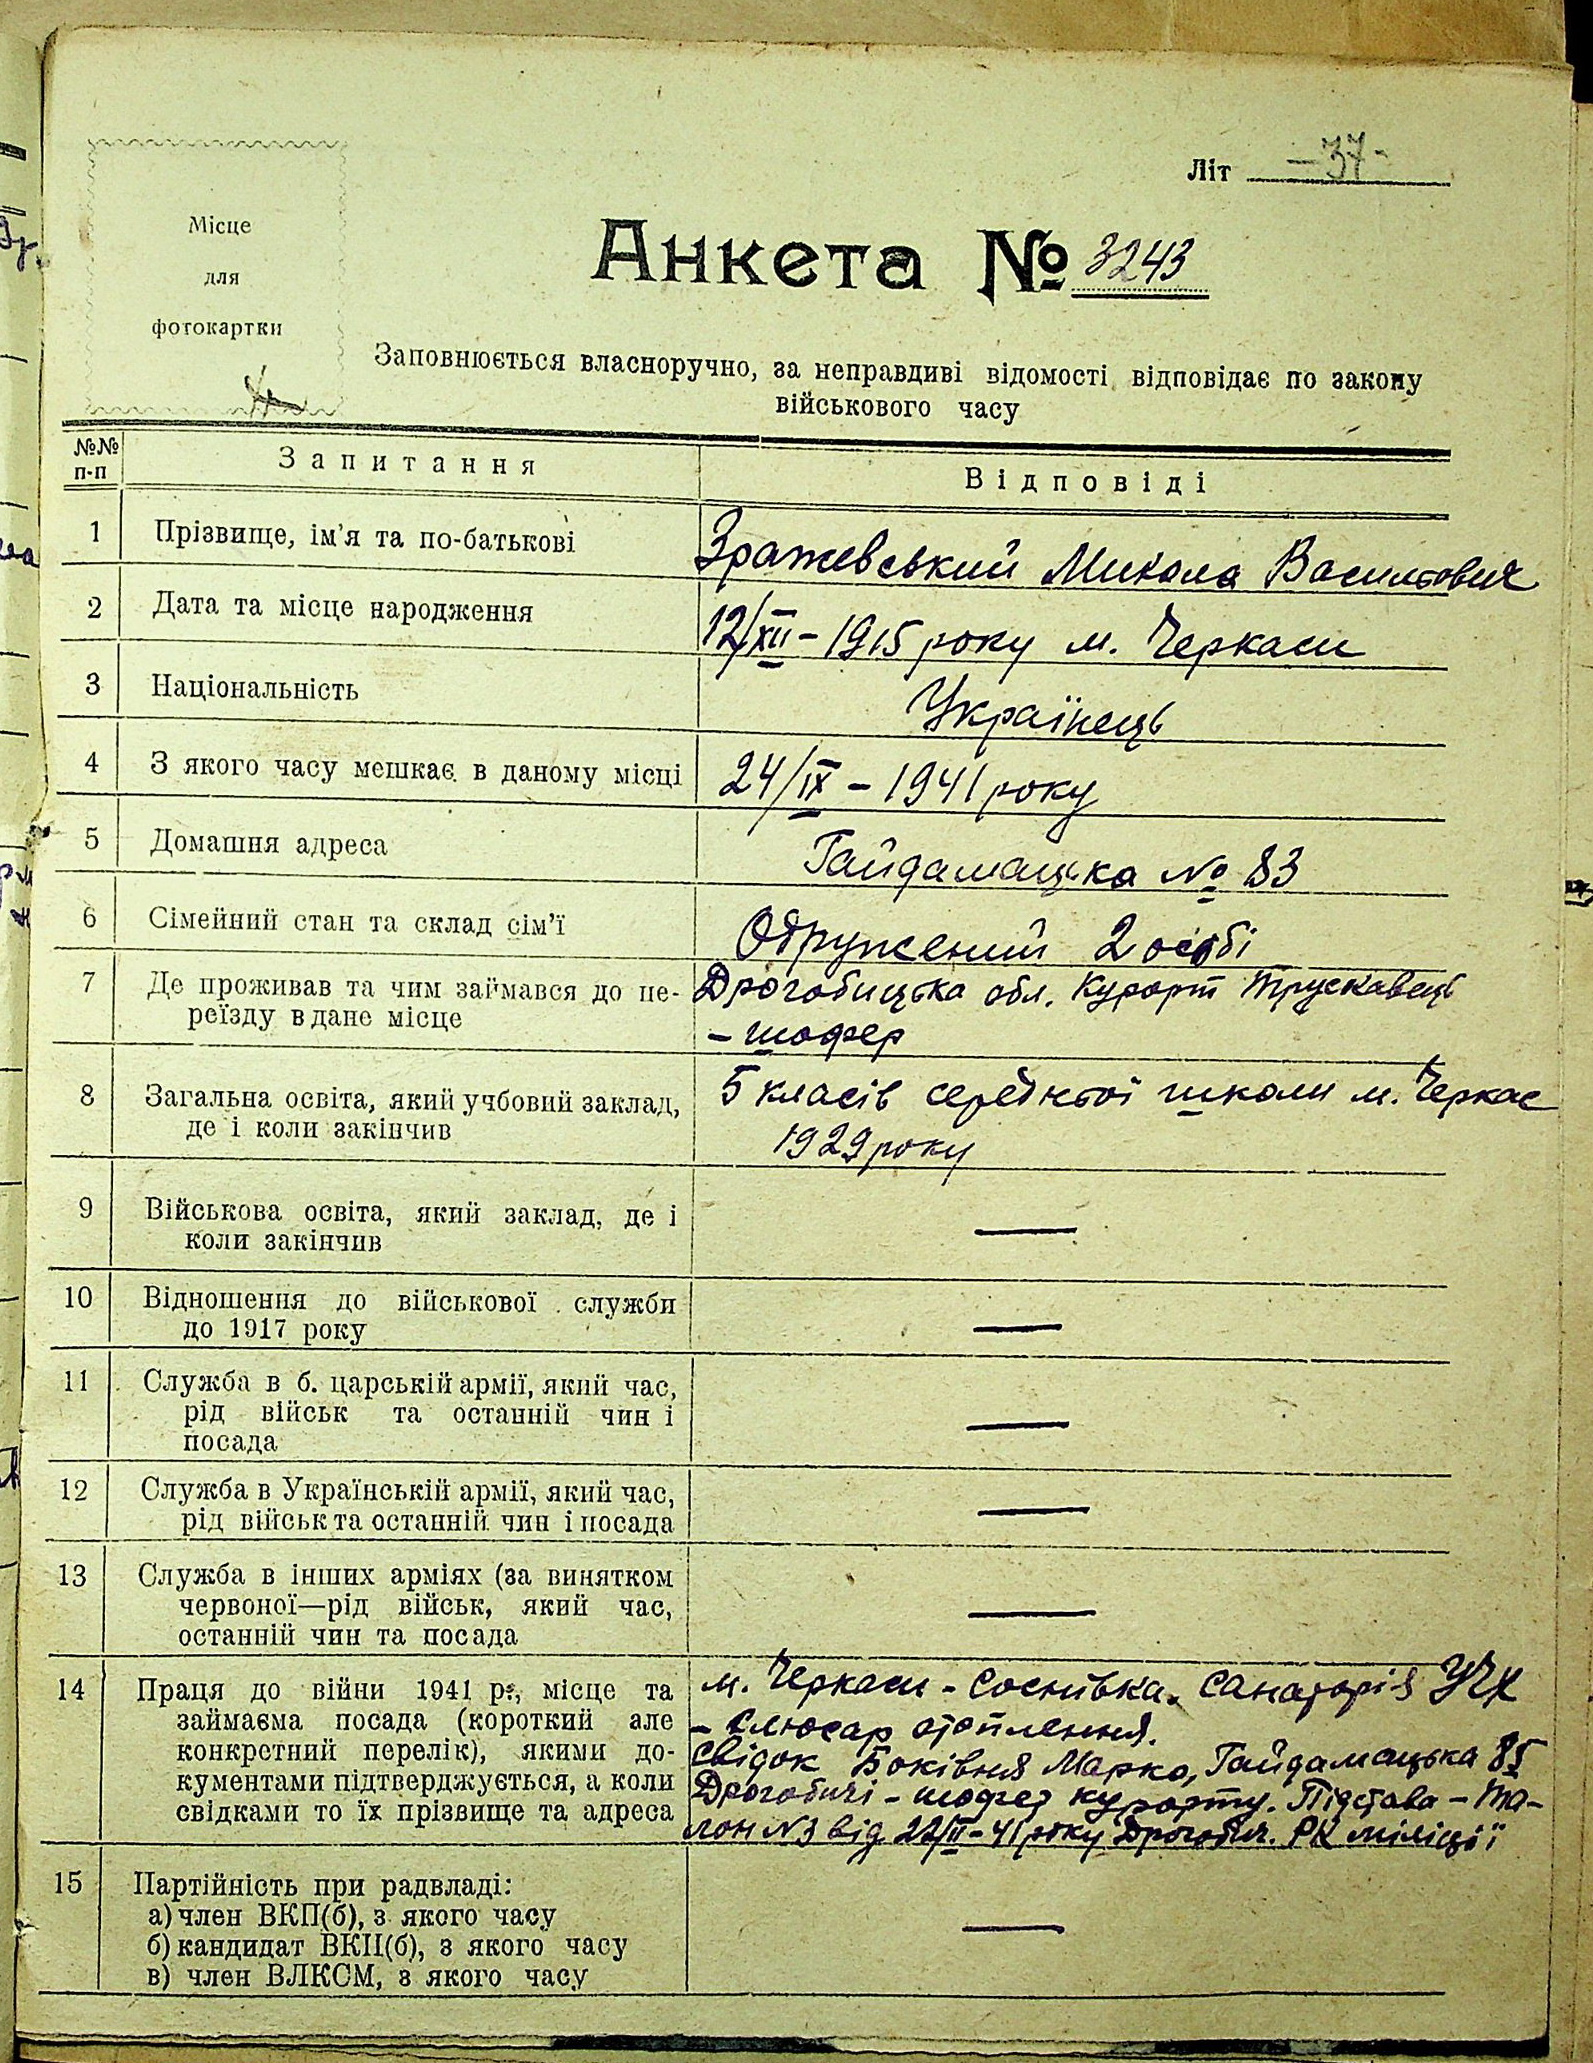 Літ -37-
Місце
для
фотокартки
Анкета № 3243
Заповнюється власноручно, за неправдиві відомості відповідає по закону
військового часу
№№ п-п Запитання Відповіді
1 Прізвище, ім'я та по-батькові Зражевський Микола Васильович
2 Дата та місце народження 12/XII - 1915 року м. Черкаси
3 Національність Українець
4 З якого часу мешкає в даному місці 24/IX - 1941 року
5 Домашня адреса Гайдамацька № 83
6 Сімейний стан та склад сім'ї Одружений 2 особі
7 Де проживав та чим займався до пе- Дрогобицька обл. Курорт Трускавець
реїзду в дане місце - шофер
8 Загальна освіта, який учбовий заклад, 5 класів середньої школи м. Черкас
де і коли закінчив 1929 року
9 Військова освіта, який заклад, де і —
коли закінчив
10 Відношення до військової служби —
до 1917 року
11 Служба в б. царській армії, який час, —
рід військ та останній чин і
посада
12 Служба в Українській армії, який час, —
рід військ та останній чин і посада
13 Служба в інших арміях (за винятком —
червоної—рід військ, який час,
останній чин та посада
14 Праця до війни 1941 р., місце та м. Черкаси - Соснівка. Санаторія УЧХ
займаєма посада (короткий але - слюсар отоплення.
конкретний перелік), якими до- Свідок Боківня Марко, Гайдамацька 85
кументами підтверджується, а коли Дрогобичі - шофер курорту. Підстава - та-
свідками то їх прізвище та адреса лон N3 від 22/II - 41 року Дрогобич. РК міліції
15 Партійність при радвладі: —
а) член ВКП(б), з якого часу
б) кандидат ВКП(б), з якого часу
в) член ВЛКСМ, з якого часу